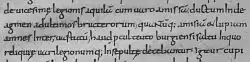 deuicesimę legionis aquilā cum uaro amissā. ductum Inde
agmen adultimos bructerorum. quantūq; amisiā & lupiam
amnes inter uastatū. haud pcul teuto burgiensi saltu Inquo
reliquię uari legionumq; Insepultę dicebantur Igitur cupi